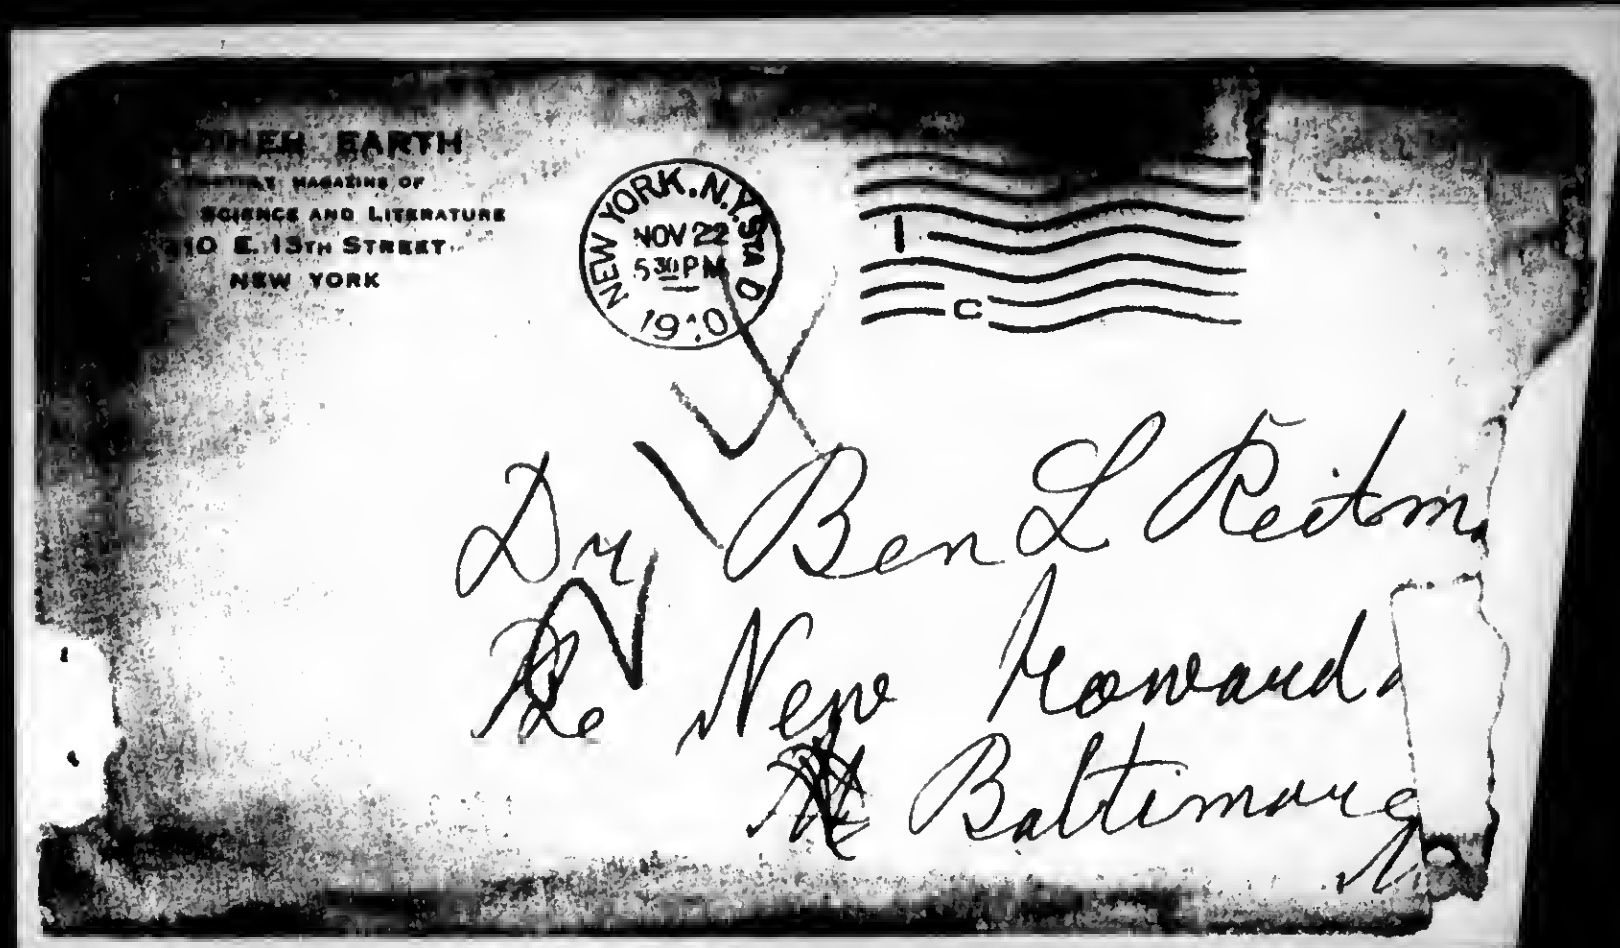 EARTH
MAGAZINE OF
SCIENCE AND LITERATURE
210 E. 13TH STREET
NEW YORK
NEW YORK, N.Y. STA D
NOV 22
5 30 PM
1910
1
C
Dr Ben L Reitm
The New Howard
Baltimore